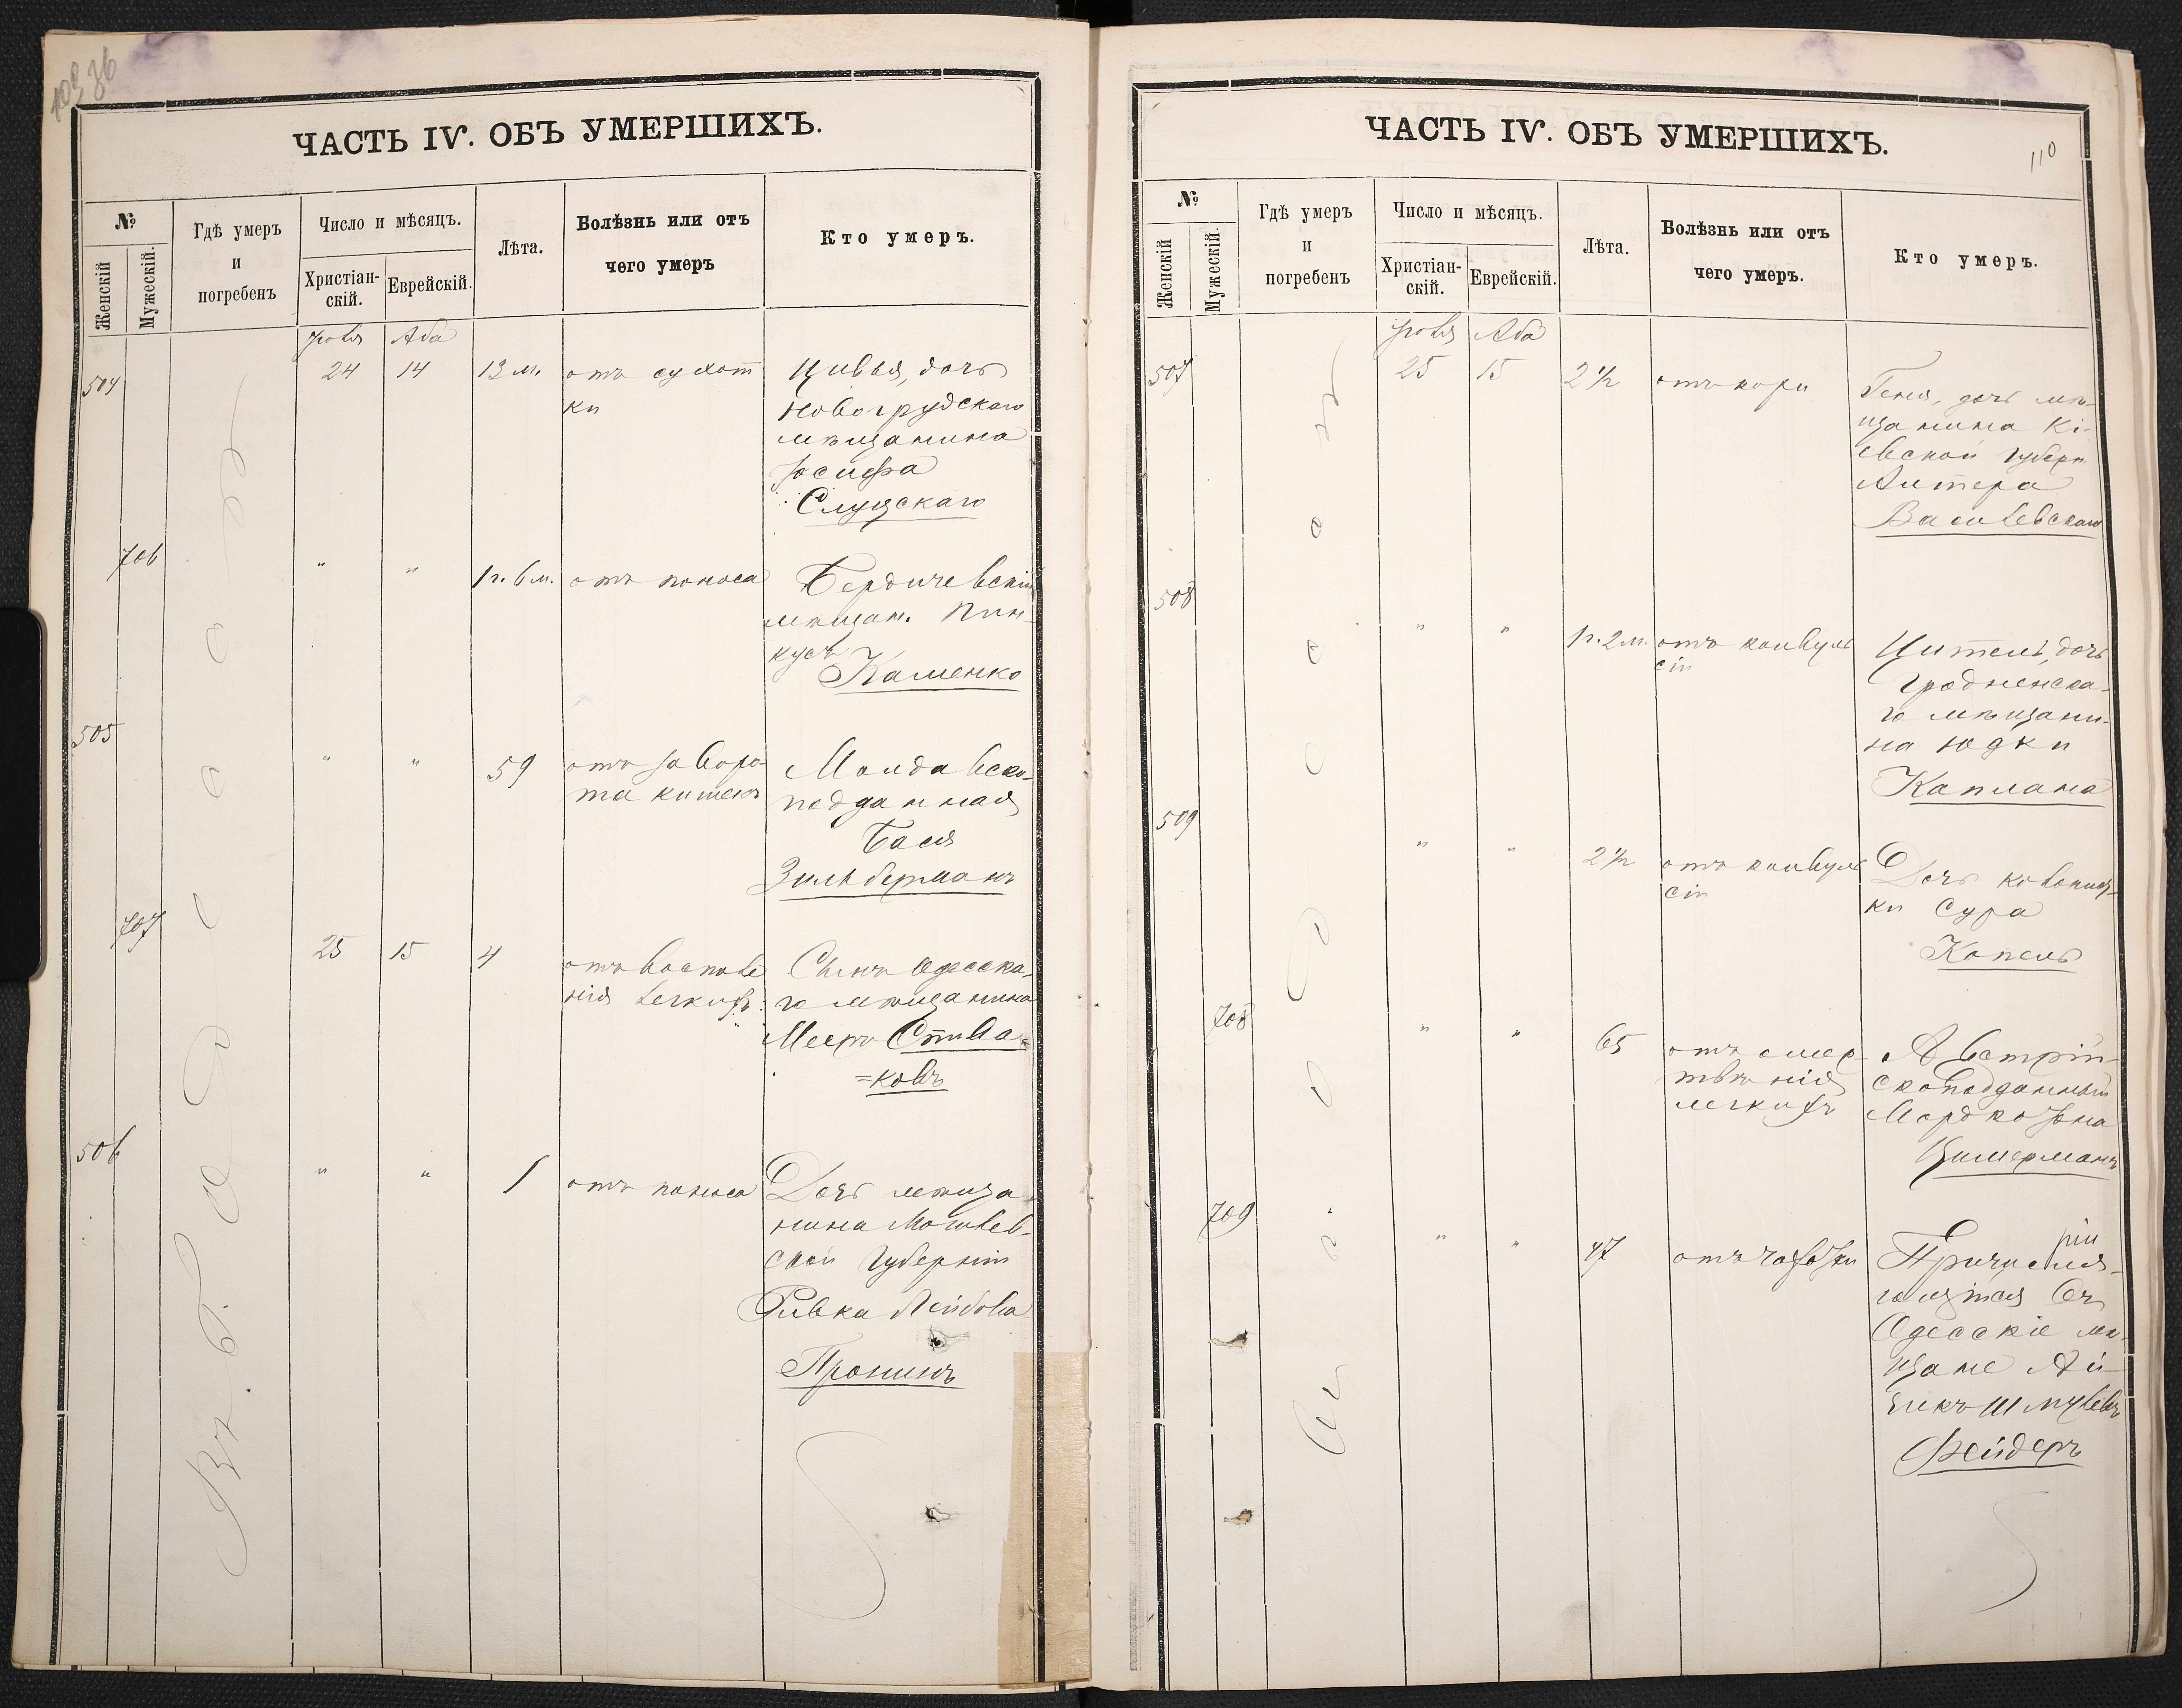 36
ЧАСТЬ IV. ОБЪ УМЕРШИХЪ.
№
Женскій
Мужескій.
Гдѣ умеръ
и
погребенъ
Число и мѣсяцъ.
Христіан-
скій.
Еврейскій.
Лѣта.
Болѣзнь или отъ
чего умеръ
Кто умеръ.
Въ г. Одессѣ
Іюля
Аба
504
24
14
13 м.
отъ сухот
ки
Цивья, дочь
Новогрудскаго
мѣщанина
Іосифа
Слуцскаго
706
"
"
1 г. 6 м.
отъ поноса
Бердичевскій
мѣщан. Пин-
кусъ
Каменко
505
"
"
59
отъ заворо-
та кишекъ
Молдавско-
подданная
Бася
Зильберманъ
707
25
15
4
отъ воспале
нія легкихъ
Сынъ Одесска-
го мѣщанина
Мееръ Спива-
=ковъ
506
"
"
1
отъ поноса
Дочь мѣща
нина Могилев-
ской Губерніи
Ривка Лейбова
Пронинъ
ЧАСТЬ IV. ОБЪ УМЕРШИХЪ.
110
№
Женскій
Мужескій.
Гдѣ умеръ
и
погребенъ
Число и мѣсяцъ.
Христіан-
скій.
Еврейскій.
Лѣта.
Болѣзнь или отъ
чего умеръ.
Кто умеръ.
Іюля
Аба
507
25
15
2 1/2
отъ кори
Геня, дочь мѣ-
щанина Кі-
евской Губерн
Алтера
Василевскаго
508
"
"
1 г. 2 м.
отъ конвуль
сіи
Цитель, дочь
Гродненска-
го мѣщани-
на Юдки
Каплана
509
"
"
2 1/2
отъ конвуль
сіи
Дочь колонист-
ки Сура
Копель
708
"
"
65
отъ омер
твѣнія
легкихъ
Австрій-
скоподданный
Мордко Іона
Цимерманъ
709
"
"
47
отъ чахотки
Причисля-
ющійся Въ
Одесскіе мѣ-
щане Ай-
зикъ Шмулевъ
Фейдеръ